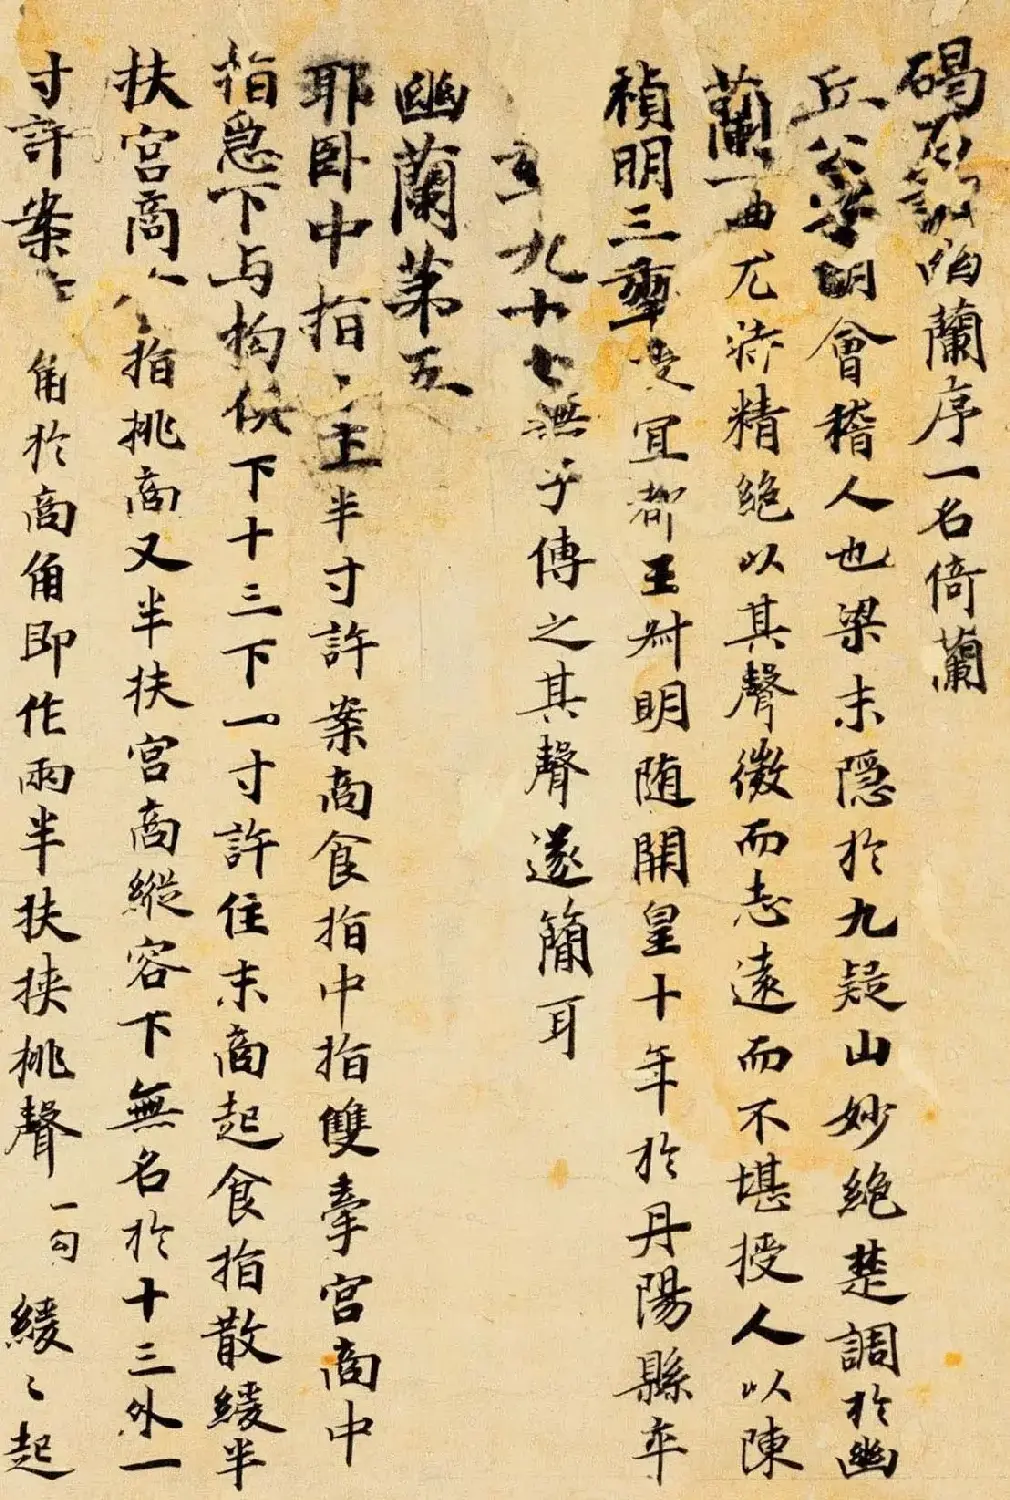 碣石調幽蘭序一名倚蘭
丘公字明會稽人也梁末隱於九疑山妙絕楚調於幽
蘭一曲尤特精絕以其聲微而志遠而不堪授人以陳
禎明三年授宜都王叔明随開皇十年於丹陽縣卒
九十七無子傳之其聲遂簡耳
幽蘭第五
耶卧中指上半寸許案商食指中指雙牽宮商中
指急下与拘俱下十三下一寸許住末商起食指散緩半
扶宮商食指挑商又半扶宮商縱容下無名於十三外一
寸許案商角於商角即作兩半扶挾挑聲一句緩〻起